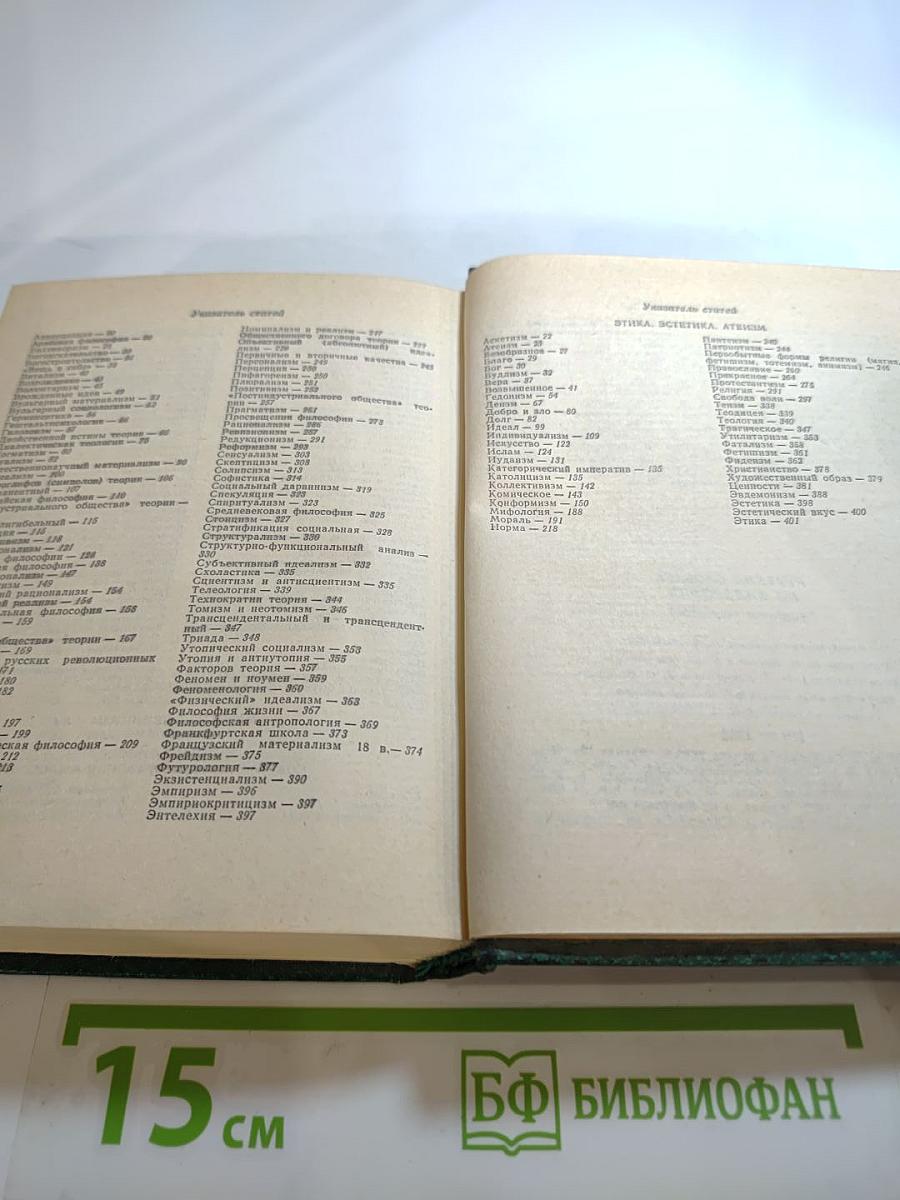 Указатель статей
философия — 20
Витализм — 67
Возрождение
Волюнтаризм
Врожденные идеи — 69
Вульгарный материализм — 81
Вульгарный социологизм — 82
Герменевтика
Гилозоизм — 87
Двойственной истины теория
Диалектическая теология — 75
естественнонаучный материализм — 90
иероглифов (символов) теория — 106
философия — 110
общества» теории —
— 115
— 121
философии
философия — 138
— 147
— 149
рационализм — 154
реализм — 154
философия — 158
— 159
общества» теории — 167
— 169
русских революционных
171
180
182
197
— 199
философия — 209
212
213
Номинализм и реализм — 217
Общественного договора теории — 229
Объективный (абсолютный) идеа-
лизм — 229
Первичные и вторичные качества — 245
Персонализм — 249
Перцепция — 250
Пифагореизм — 250
Плюрализм — 251
Позитивизм — 252
«Постиндустриального общества» тео-
рии — 257
Прагматизм — 261
Просвещения философия — 273
Рационализм — 286
Ревизионизм — 287
Редукционизм — 291
Реформизм — 293
Сенсуализм — 303
Скептицизм — 308
Солипсизм — 313
Софистика — 314
Социальный дарвинизм — 319
Спекуляция — 323
Спиритуализм — 323
Средневековая философия — 325
Стоицизм — 327
Стратификация социальная — 328
Структурализм — 330
Структурно-функциональный анализ —
330
Субъективный идеализм — 332
Схоластика — 335
Сциентизм и антисциентизм — 335
Телеология — 339
Технократии теория — 344
Томизм и неотомизм — 346
Трансцендентальный и трансцендент-
ный — 347
Триада — 348
Утопический социализм — 353
Утопия и антиутопия — 355
Факторов теория — 357
Феномен и ноумен — 359
Феноменология — 360
«Физический» идеализм — 363
Философия жизни — 367
Философская антропология — 369
Франкфуртская школа — 373
Французский материализм 18 в.— 374
Фрейдизм — 375
Футурология — 377
Экзистенциализм — 390
Эмпиризм — 396
Эмпириокритицизм — 397
Энтелехия — 397
Указатель статей
ЭТИКА. ЭСТЕТИКА. АТЕИЗМ.
Аскетизм — 22
Атеизм — 23
Безобразное — 27
Благо — 29
Бог — 30
Буддизм — 32
Вера — 37
Возвышенное — 41
Гедонизм — 54
Деизм — 67
Добро и зло — 80
Долг — 82
Идеал — 99
Индивидуализм — 109
Искусство — 122
Ислам — 124
Иудаизм — 131
Категорический императив — 135
Католицизм — 135
Коллективизм — 142
Комическое — 143
Конформизм — 150
Мифология — 188
Мораль — 191
Норма — 218
Пантеизм — 240
Патриотизм — 244
Первобытные формы религии (магия,
фетишизм, тотемизм, анимизм) — 246
Православие — 260
Прекрасное — 264
Протестантизм — 275
Религия — 291
Свобода воли — 297
Теизм — 338
Теодицея — 339
Теология — 340
Трагическое — 347
Утилитаризм — 353
Фатализм — 358
Фетишизм — 361
Фидеизм — 362
Христианство — 378
Художественный образ — 379
Ценности — 381
Эвдемонизм — 388
Эстетика — 398
Эстетический вкус — 400
Этика — 401
15 см
БФ БИБЛИОФАН